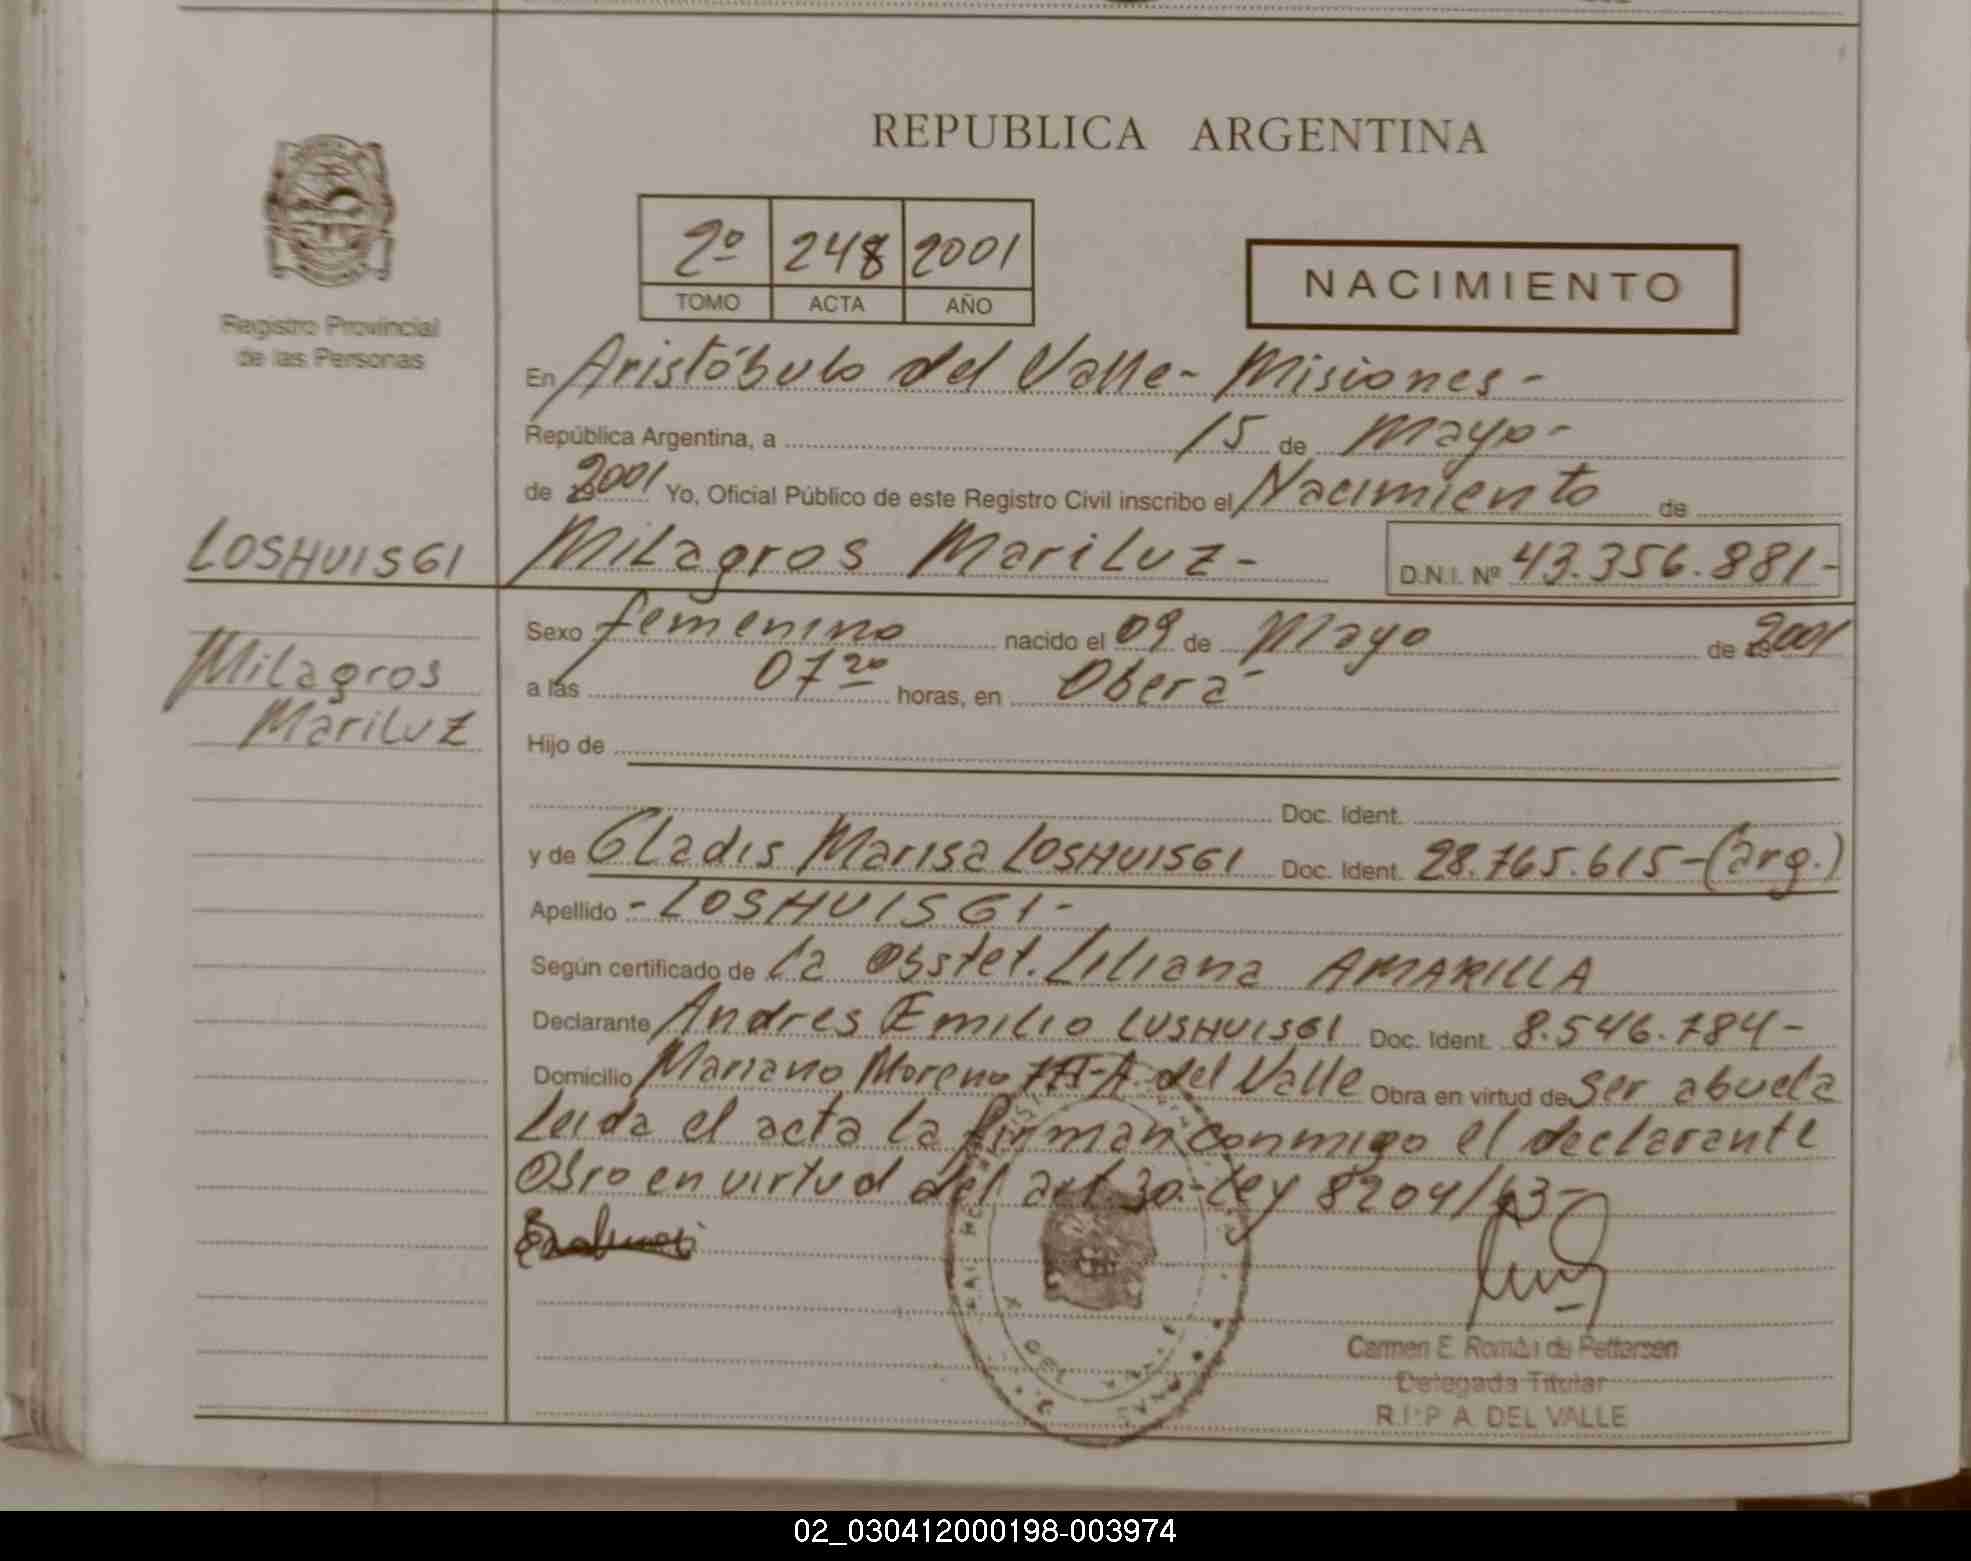 REPUBLICA ARGENTINA
2º 248 2001
TOMO ACTA AÑO
NACIMIENTO
Registro Provincial
de las Personas
En Aristóbulo del Valle - Misiones -
República Argentina, a 15 de Mayo -
de 2001 Yo, Oficial Público de este Registro Civil inscribo el Nacimiento de
LOSHUISGI Milagros Mariluz - D.N.I. Nº 43.356.881-
Sexo femenino nacido el 09 de Mayo de 2001
Milagros
a las 07 20 horas, en Oberá
Mariluz
Hijo de
Doc. Ident.
y de Gladis Marisa LOSHUISGI Doc. Ident. 28.765.615-(arg.)
Apellido - LOSHUISGI -
Según certificado de La Obstet. Liliana AMARILLA
Declarante Andres Emilio LUSHUISGI Doc. Ident. 8.546.784-
Domicilio Mariano Moreno A. del Valle Obra en virtud de Ser abuelo
Leida el acta la firman conmigo el declarante
Obro en virtud del art 30.-Ley 8204/63-
Carmen E. Román de Pettersen
Delegada Titular
R.P.P A. DEL VALLE
02_030412000198-003974